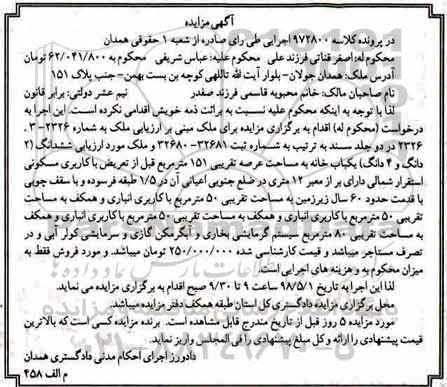 آگهی مزایده
در پرونده کلاسه ۹۷۲۸۰۰ اجرایی طی رای صادره از شعبه ۱ حقوقی همدان
محکوم له:اصغر قناتی فرزند علی محکوم علیه:عباس شریفی محکوم به ۶۲/۰۴۱/۸۰۰ تومان
آدرس ملک: همدان جولان- بلوار آیت الله تاللهی کوچه بن بست بهمن- جنب پلاک ۱۵۱
نام صاحبان مالک: خانم محبوبه قاسمی فرزند صفدر نیم عشر دولتی: برابر قانون
لذا با توجه به اینکه محکوم علیه نسبت به برائت ذمه خویش اقدامی نکرده است. این اجرا به
درخواست (محکوم له) اقدام به برگزاری مزایده برای ملک مبنی بر ارزیابی ملک به شماره ۲۳۲۶- ۳.
۲۳۲۶ در دو جلد سند به ترتیب به شماره ثبت ۳۲۶۸۱- ۳۲۶۸۰ و ملک مورد ارزیابی ششدانگ (۲
دانگ و ۴ دانگ) یکباب خانه به مساحت عرصه تقریبی ۱۵۱ مترمربع قبل از تعریض با کاربری مسکونی
استقرار شمالی دارای بر از معبر ۱۲ متری در ضلع جنوبی اعیانی آن در ۱/۵ طبقه فرسوده و با سقف چوبی
با قدمت حدود ۶۰ سال زیرزمین به مساحت تقریبی ۵۰ مترمربع با کاربری انباری و همکف به مساحت
تقریبی ۵۰ مترمربع با کاربری انباری و همکف به مساحت تقریبی ۵۰ مترمربع با کاربری انباری و همکف
به مساحت تقریبی ۸۰ مترمربع سیستم گرمایشی بخاری و آبگرمکن گازی و سرمایشی کولر آبی و در
تصرف مستاجر میباشد و قیمت کارشناسی شده ۲۵۰/۰۰۰/۰۰۰ تومان میباشد. و مورد فروش فقط به
میزان محکوم به و هزینه های اجرایی است.
لذا این اجرا به تاریخ ۹۸/۵/۱ ساعت ۹ تا ۹/۳۰ صبح اقدام به برگزاری مزایده می نماید.
محل برگزاری مزایده دادگستری کل استان طبقه همکف دفتر مزایده میباشد.
مورد مزایده ۵ روز قبل از تاریخ مندرج قابل مشاهده است. برنده مزایده کسی است که بالاترین
قیمت پیشنهادی را ارائه و کل مبلغ پیشنهادی را فی المجلس واریز نماید.
دادورز اجرای احکام مدنی دادگستری همدان
م الف ۴۵۸